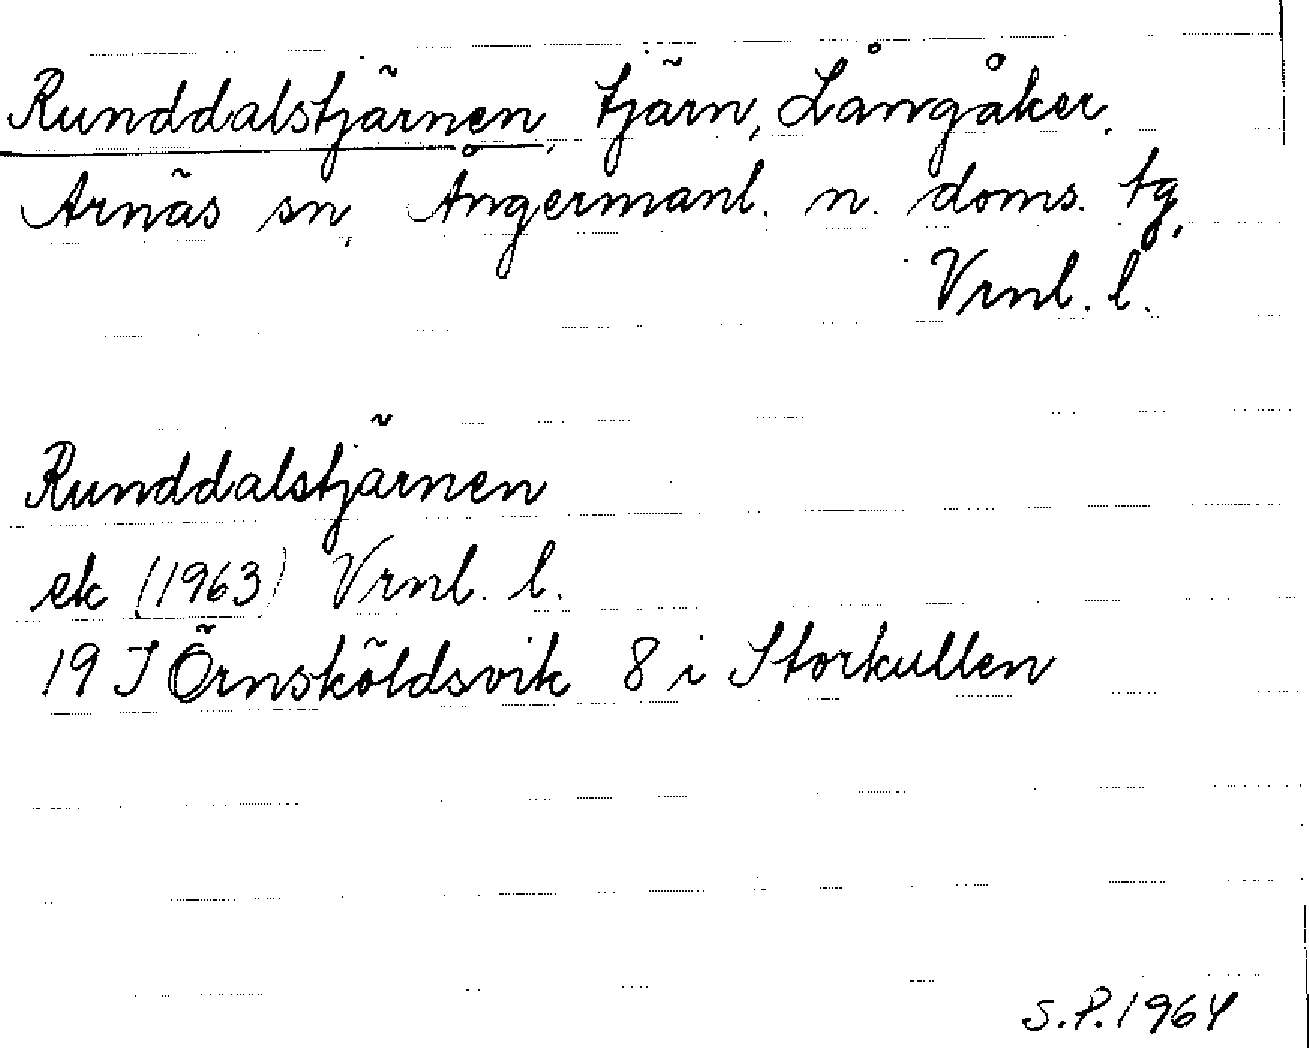 Runddalstjärnen, tjärn, Långåker,
Arnäs sn, Ångermanl. n. doms. tg,
Vrnl. l.
Runddalstjärnen
ek (1963) Vrnl. l.
19 J Örnsköldsvik 8 i Storkullen
S.P. 1964